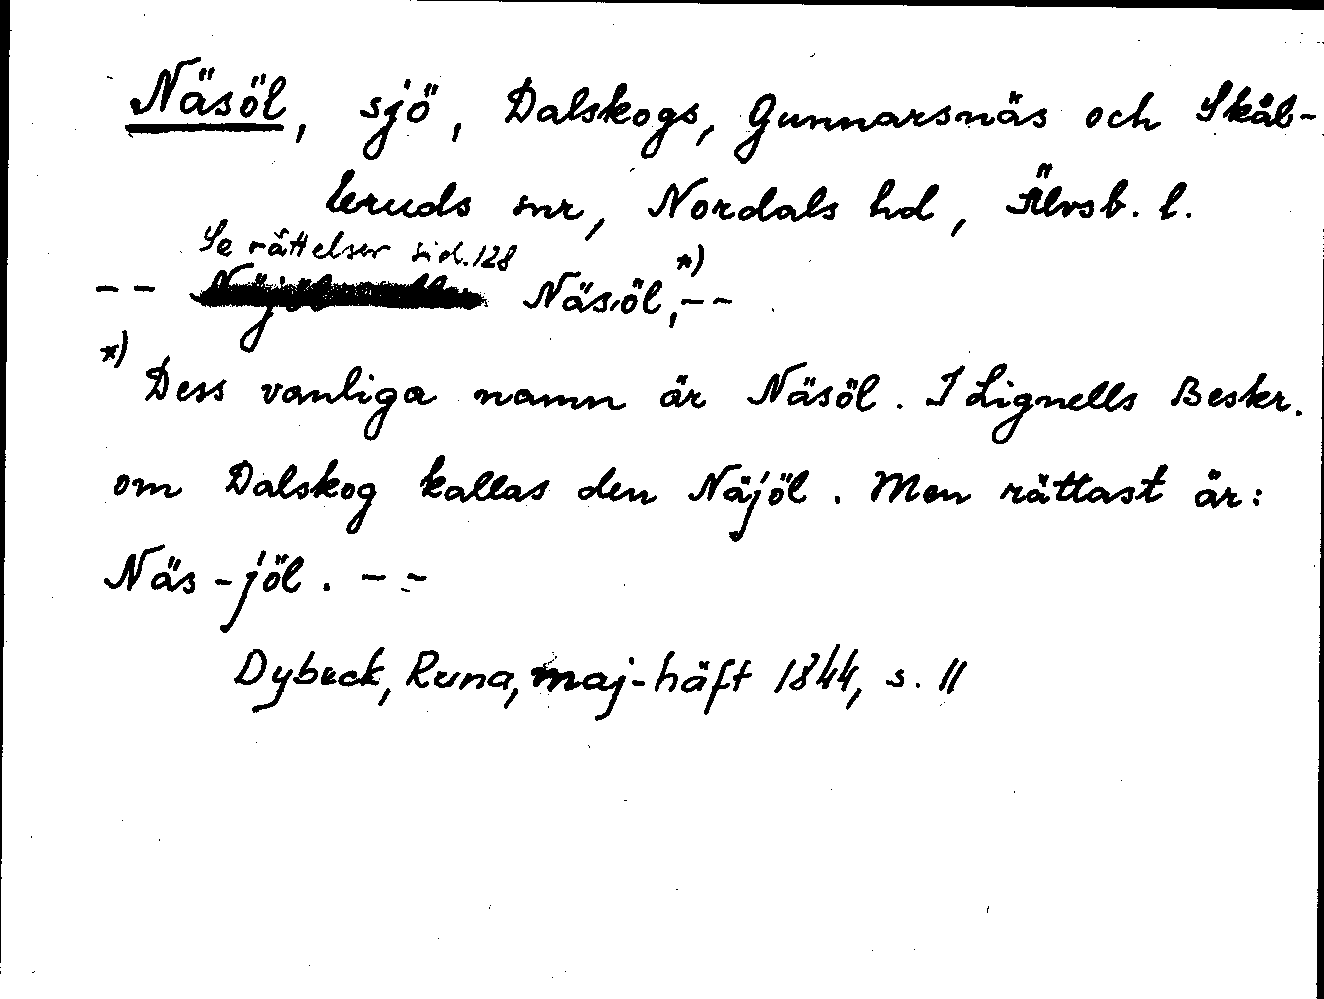 Näsöl, sjö, Dalskogs, Gunnarsnäs och Skål-
leruds snr, Nordals hd, Älvsb. l.
Se rättelser sid. 128
-- Näsöl,*) --
*) Dess vanliga namn är Näsöl. I Lignells Beskr.
om Dalskog kallas den Näjöl. Men rättast är:
Näs-jöl. --
Dybeck, Runa, maj-häft 1844, s. 11